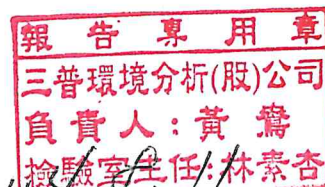 報告專用章
三普環境分析(股)公司
負責人:黃鶯
檢驗室主任:林素杏